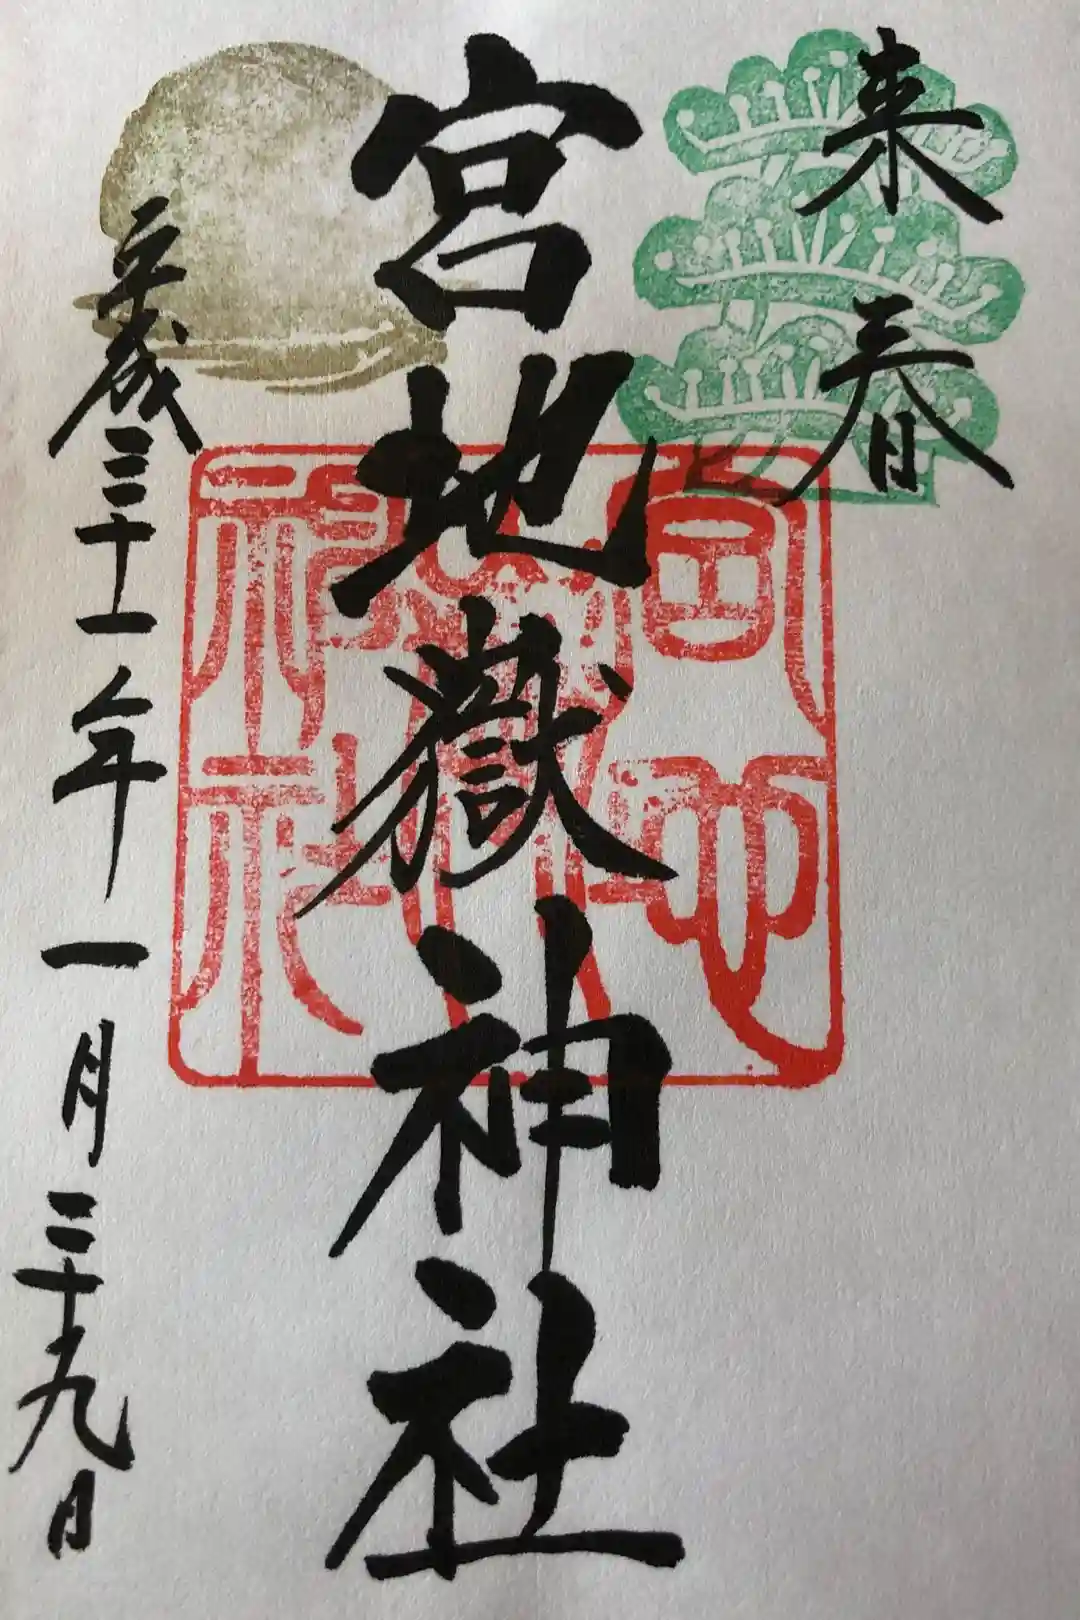 来春
宮地嶽神社
平成三十一年一月二十九日
宮地嶽神社